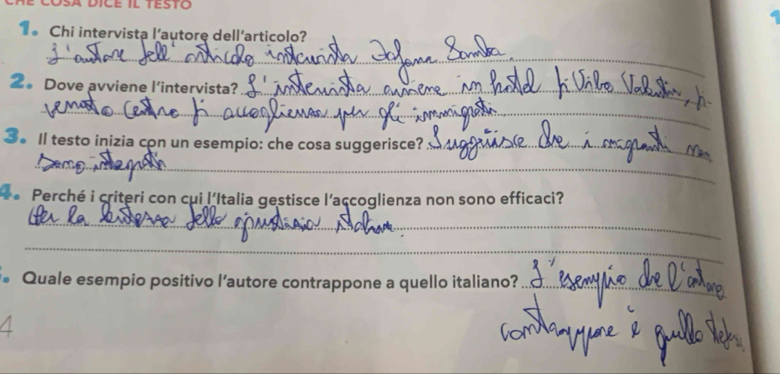 CHE COSA DICE IL TESTO
1. Chi intervista l'autore dell'articolo?
L'autore dell'articolo intervista Samba.
2. Dove avviene l'intervista? L'intervista avviene in hotel di Vibo Valentia, di-
venuto centro di accoglienza per gli immigrati
3. Il testo inizia con un esempio: che cosa suggerisce? Suggerisce che i migranti non
sono integrati
4. Perché i criteri con cui l'Italia gestisce l'accoglienza non sono efficaci?
Per la lentezza della giustizia italiana.
Quale esempio positivo l'autore contrappone a quello italiano? L'esempio che l'autore
contrappone è quello
4